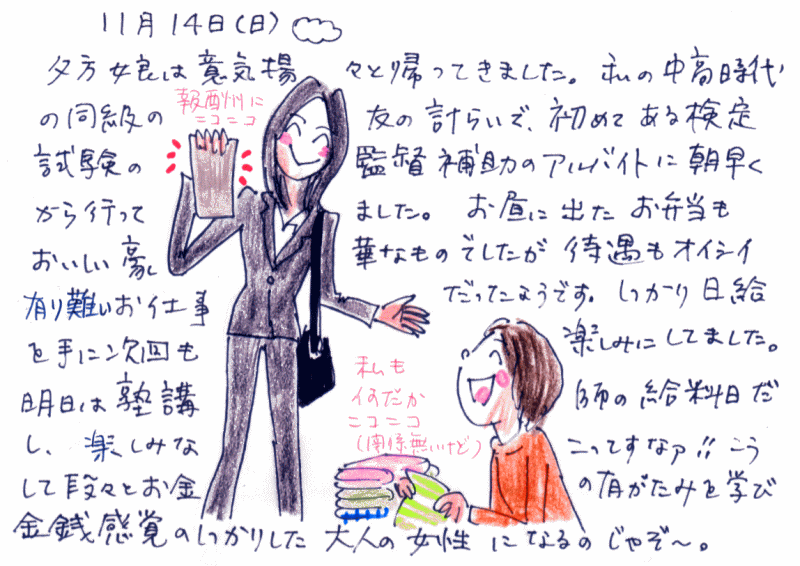 11月14日(日)
夕方女良は意気揚々と帰ってきました。私の中高時代
の同級の友の計らいで、初めてある検定
試験の監督補助のアルバイトに朝早く
から行って ました。 お昼に出たお弁当も
おいしい豪華なものでしたが待遇もオイシイ
有り難いお仕事だったようです。しっかり日給
を手に次回も楽しみにしてました。
明日は塾講師の給料日だ
し、楽しみなこってすなァ!!こう
して段々とお金の有がたみを学び
金銭感覚のしっかりした大人の女性になるのじゃぞ〜。
報酬に
ニコニコ
私も
何だか
ニコニコ
(関係無いけど)